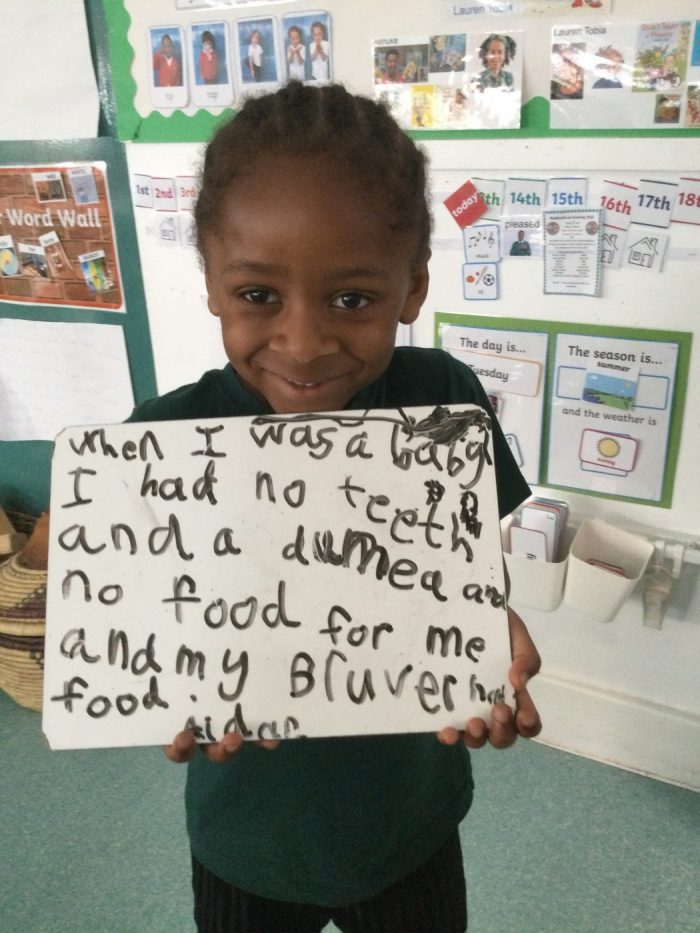 Lauren Tobia
Lauren Tobia
Word Wall
1st 2nd 3rd
today
14th 15th 16th 17th
pleased
music
The day is...
Tuesday
The season is...
summer
and the weather is
sunny
when I was a baby
I had no teeth
and a dumea and
no food for me
and my Bruver had
food.
Aidan